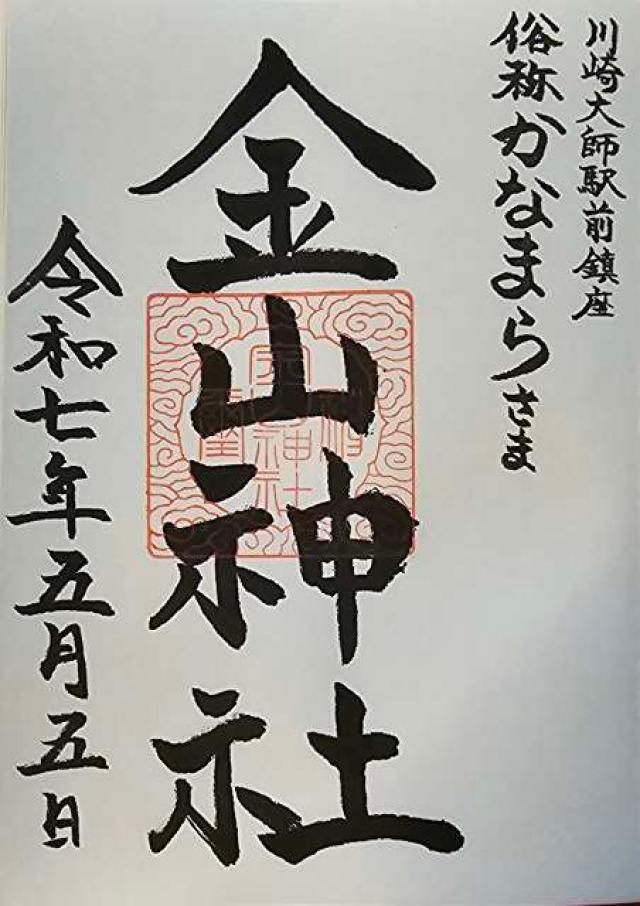 川崎大師駅前鎮座
俗称かなまらさま
金山神社
令和七年五月五日